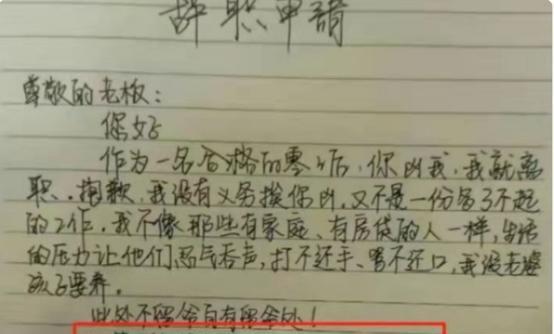 辞职申請
尊敬的老板：
您好
作为一名合格的零0后，你凶我，我就离
职．抱歉，我没有义务挨你凶，又不是一份多了不起
的工作，我不像那些有家庭、有房贷的人一样，生活
的压力让他们忍气吞声，打不还手、骂不还口，我没老婆
孩子要养．
此处不留爷自有留爷处！